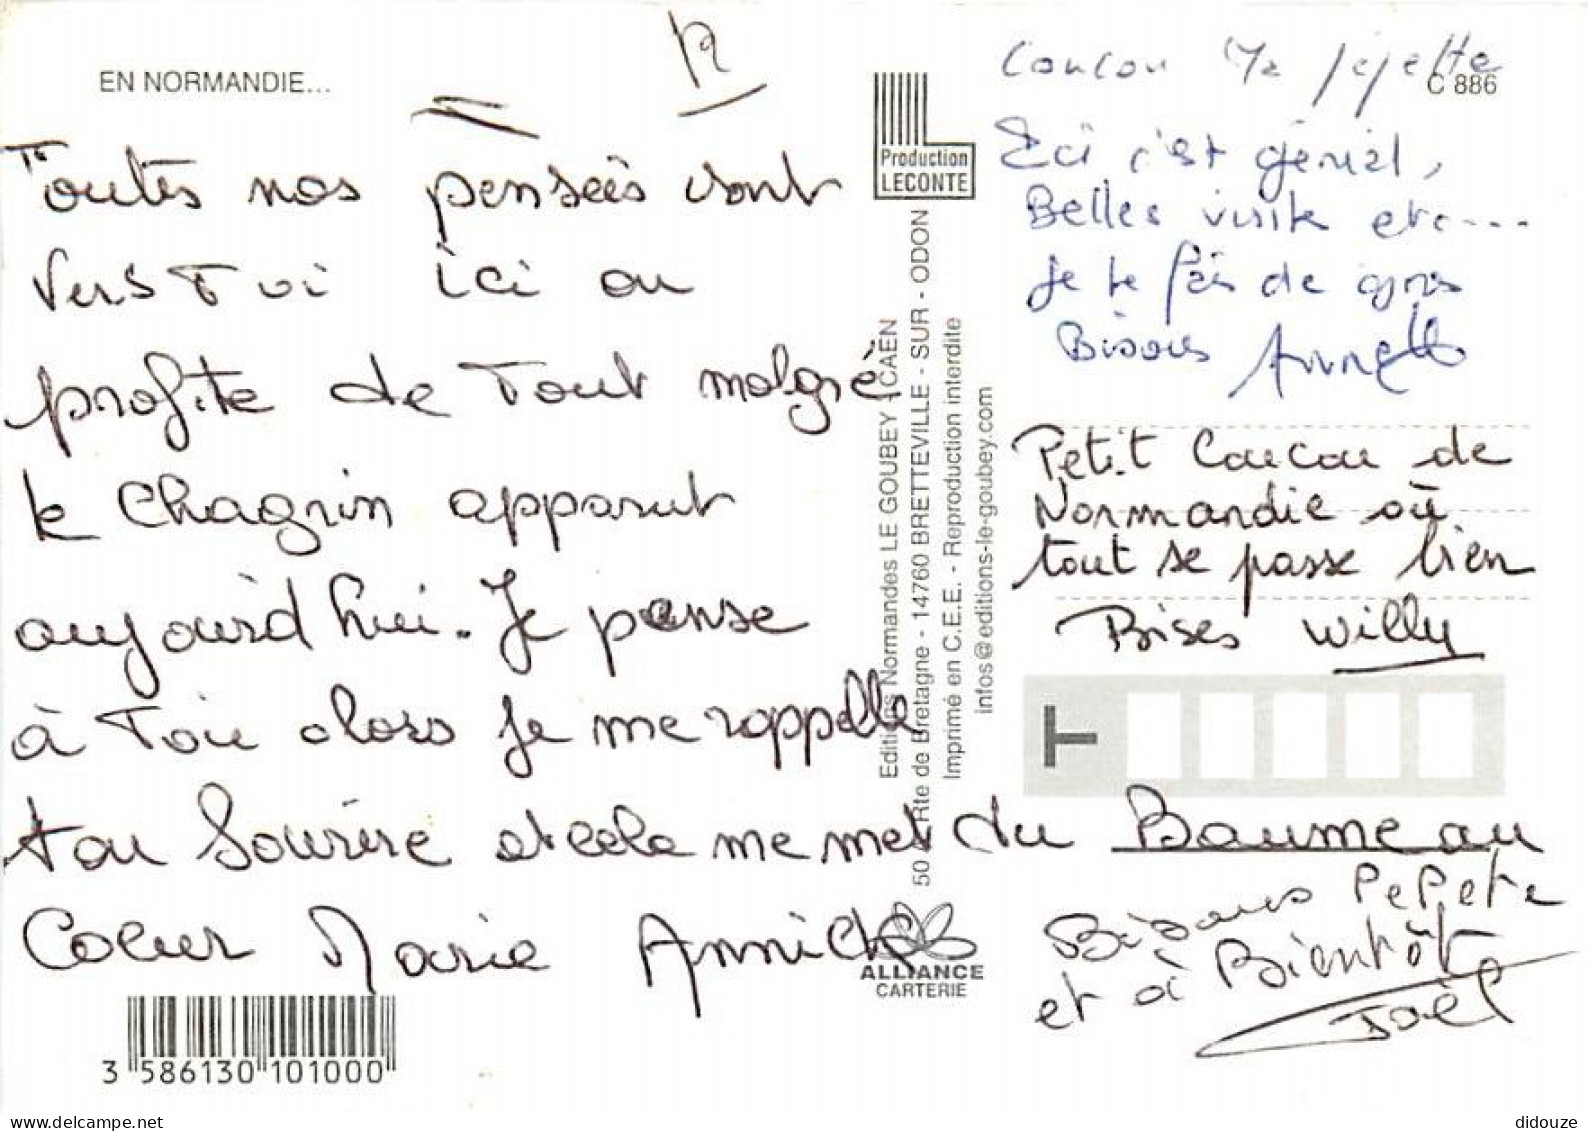 EN NORMANDIE...
Toutes nos pensées vont
vers Toi ici on
profite de Tout malgré
le chagrin apparut
aujourd'hui. Je pense
à Toi alors je me rappelle
ton Sourire et cela me met du Baume au
Coeur Marie Annick
3 586130 101000
Production
LECONTE
Editions Normandes LE GOUBEY - CAEN
50, Rte de Bretagne - 14760 BRETTEVILLE - SUR - ODON
Imprimé en C.E.E. - Reproduction interdite
infos@editions-le-goubey.com
ALLIANCE
CARTERIE
C 886
Coucou Ma pépette
Ici c'est génial,
Belles visite etc....
Je te fais de gros
Bisous Annette
Petit Coucou de
Normandie où
tout se passe bien
Bises Willy
T
Bisous PePete
et à Bientôt
Joël
didouze